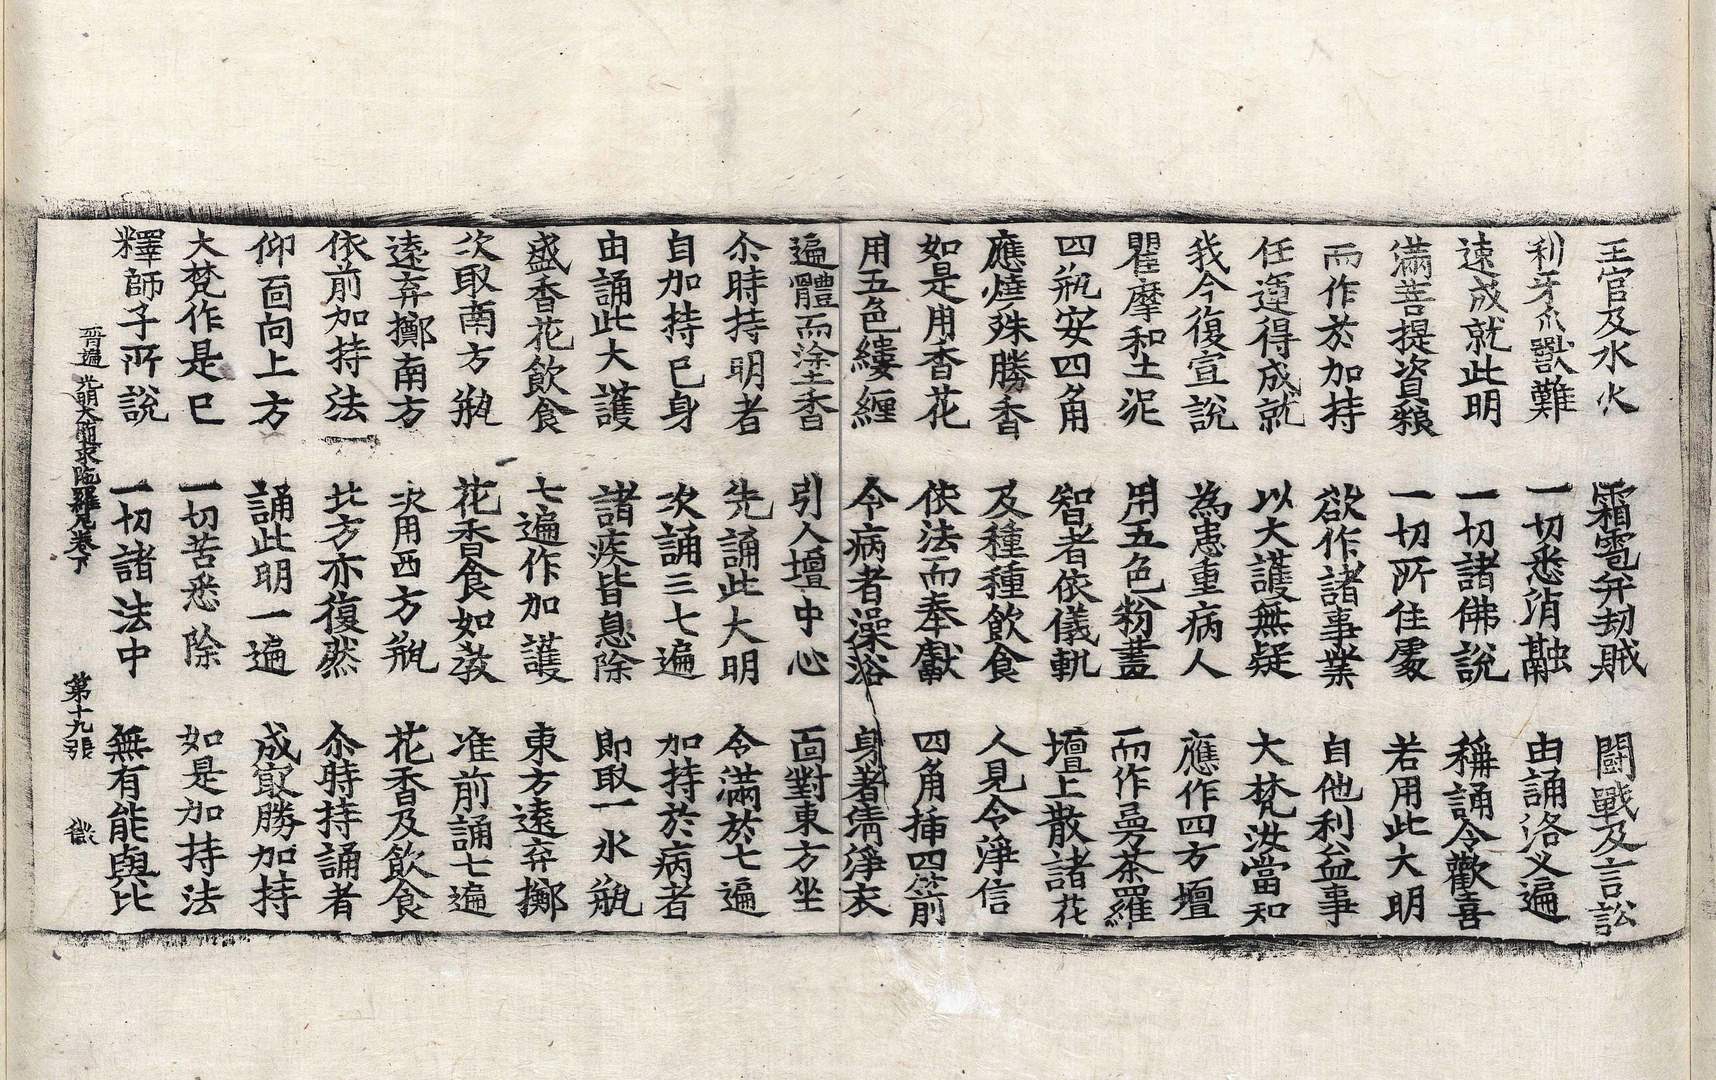 王官及水火　霜雹并劫賊　鬪戰及言訟
利牙爪獸難　一切悉消融　由誦洛叉遍
速成就此明　一切諸佛說　稱誦令歡喜
滿菩提資糧　一切所住處　若用此大明
而作於加持　欲作諸事業　自他利益事
任運得成就　以大護無疑　大梵汝當知
我今復宣說　為患重病人　應作四方壇
瞿摩和土泥　用五色粉畫　而作曼荼羅
四瓶安四角　智者依儀軌　壇上散諸花
應燒殊勝香　及種種飲食　人見令淨信
如是用香花　依法而奉獻　四角插四箭
用五色縷纏　令病者澡浴　身著清淨衣
遍體而塗香　引入壇中心　面對東方坐
尒時持明者　先誦此大明　令滿於七遍
自加持已身　次誦三七遍　加持於病者
由誦此大護　諸疾皆息除　即取一水瓶
盛香花飲食　七遍作加護　東方遠弃擲
次取南方瓶　花香食如教　准前誦七遍
遠弃擲南方　次用西方瓶　花香及飲食
依前加持法　北方亦復然　尒時持誦者
仰面向上方　誦此明一遍　成最勝加持
大梵作是已　一切苦悉除　如是加持法
釋師子所說　一切諸法中　無有能與比
普遍光明大隨求陁羅尼卷下　第十九張